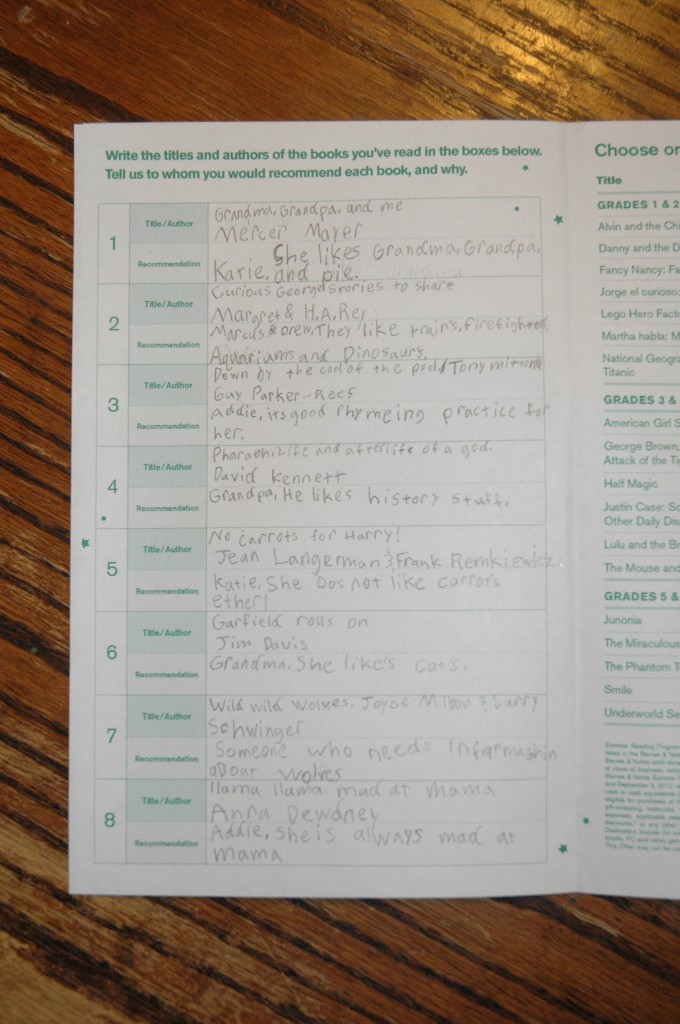 Write the titles and authors of the books you've read in the boxes below.
Tell us to whom you would recommend each book, and why.
1
Title/Author
Grandma, Grandpa, and me
Mercer Mayer
Recommendation
She likes Grandma, Grandpa,
Katie, and pie.
2
Title/Author
Curious George Stories to share
Margret & H.A. Rey
Recommendation
Marcus & Drew, They like trains, firefighters,
Aquariums and Dinosaurs.
3
Title/Author
Down by the cool of the pool/Tony mitton
Guy Parker-Rees
Recommendation
Addie, its good rhymeing practice for
her.
4
Title/Author
Pharaoh: Life and afterlife of a god.
David Kennett
Recommendation
Grandpa, He likes history stuff.
5
Title/Author
No carrots for Harry!
Jean Langerman & Frank Remkiewicz.
Recommendation
Katie, She Dos not like carrots
ether!
6
Title/Author
Garfield rolls on
Jim Davis
Recommendation
Grandma. She like's cats.
7
Title/Author
Wild wild wolves. Joyce Milton & Larry
Schwinger
Recommendation
Someone who needs informashin
about wolves
8
Title/Author
llama llama mad at mama
Anna Dewdney
Recommendation
Addie, she is always mad at
mama
Choose or
Title
GRADES 1 & 2
Alvin and the Chi
Danny and the D
Fancy Nancy: Fa
Jorge el curioso:
Lego Hero Facto
Martha habla: M
National Geogra
Titanic
GRADES 3 &
American Girl S
George Brown,
Attack of the Ti
Half Magic
Justin Case: Sc
Other Daily Dis
Lulu and the Br
The Mouse and
GRADES 5 &
Junonia
The Miraculous
The Phantom T
Smile
Underworld Se